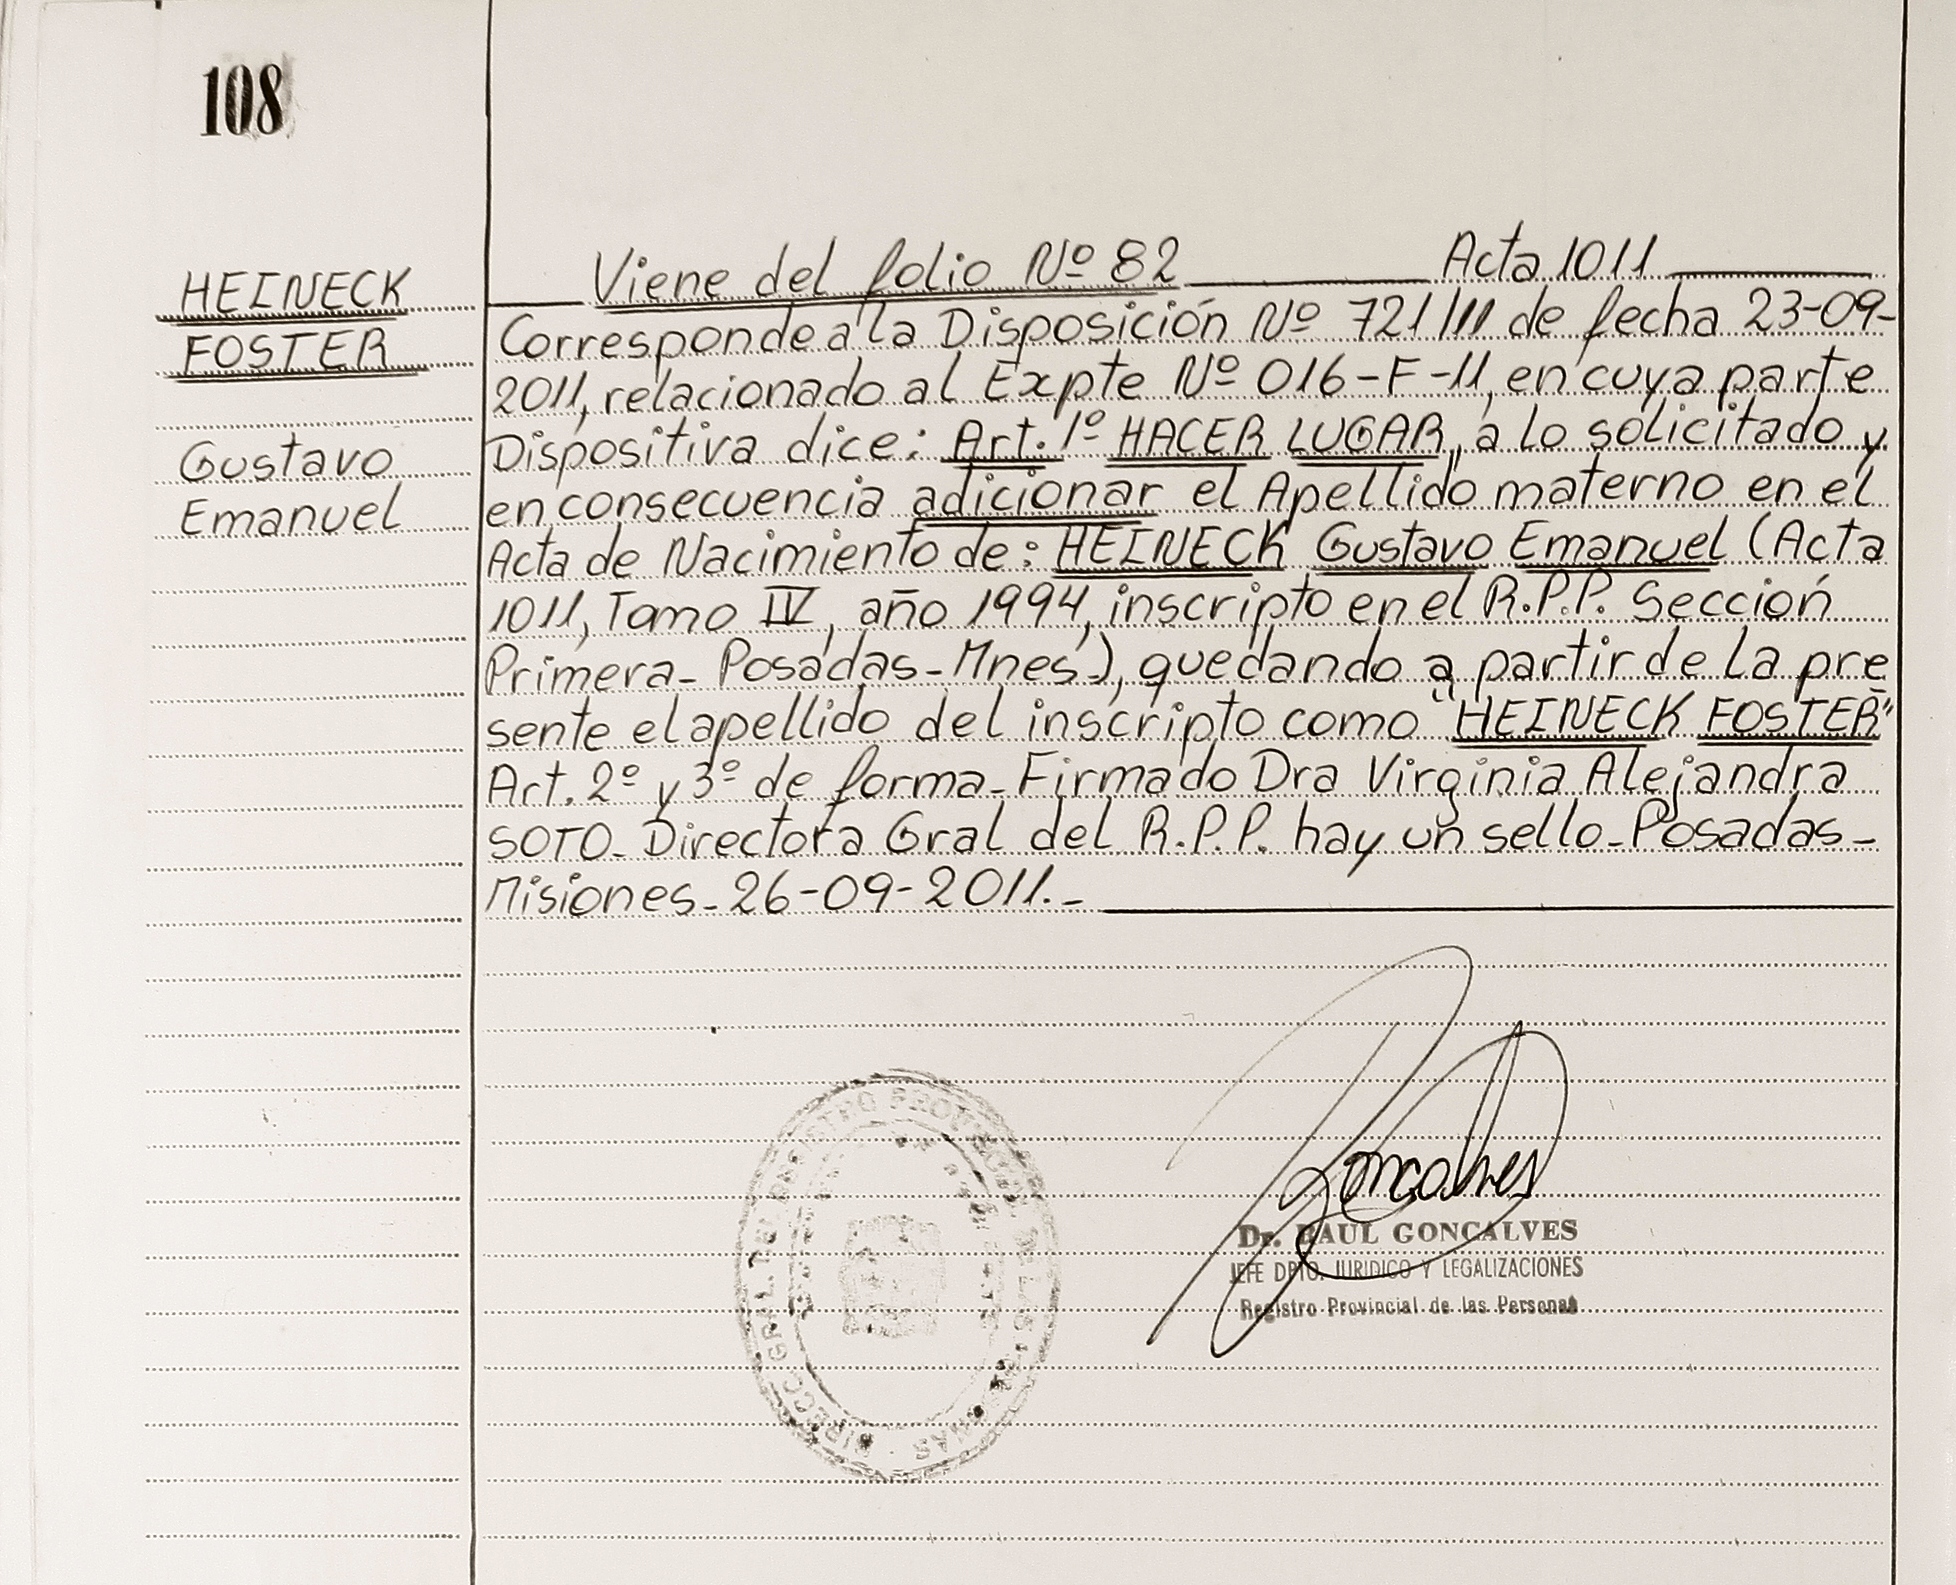 108
HEINECK
FOSTER
Gustavo
Emanuel
Viene del folio Nº 82 Acta 1011
Corresponde a la Disposición Nº 721/11 de fecha 23-09-
2011, relacionado al Expte Nº 016-F-11, en cuya parte
Dispositiva dice: Art. 1º HACER LUGAR, a lo solicitado y
en consecuencia adicionar el Apellido materno en el
Acta de Nacimiento de: HEINECK Gustavo Emanuel (Acta
1011, Tomo IV, año 1994, inscripto en el R.P.P. Sección
Primera- Posadas-Mnes.), quedando a partir de la pre
sente el apellido del inscripto como "HEINECK FOSTER"
Art. 2º y 3º de forma- Firmado Dra Virginia Alejandra
SOTO- Directora Gral del R.P.P. hay un sello-Posadas-
Misiones- 26-09-2011.-
Goncalves
Dr. RAUL GONCALVES
JEFE DPTO. JURIDICO Y LEGALIZACIONES
Registro Provincial de las Personas
DIRECC. GRAL. DEL REGISTRO PROVINCIAL DE LAS PERSONAS